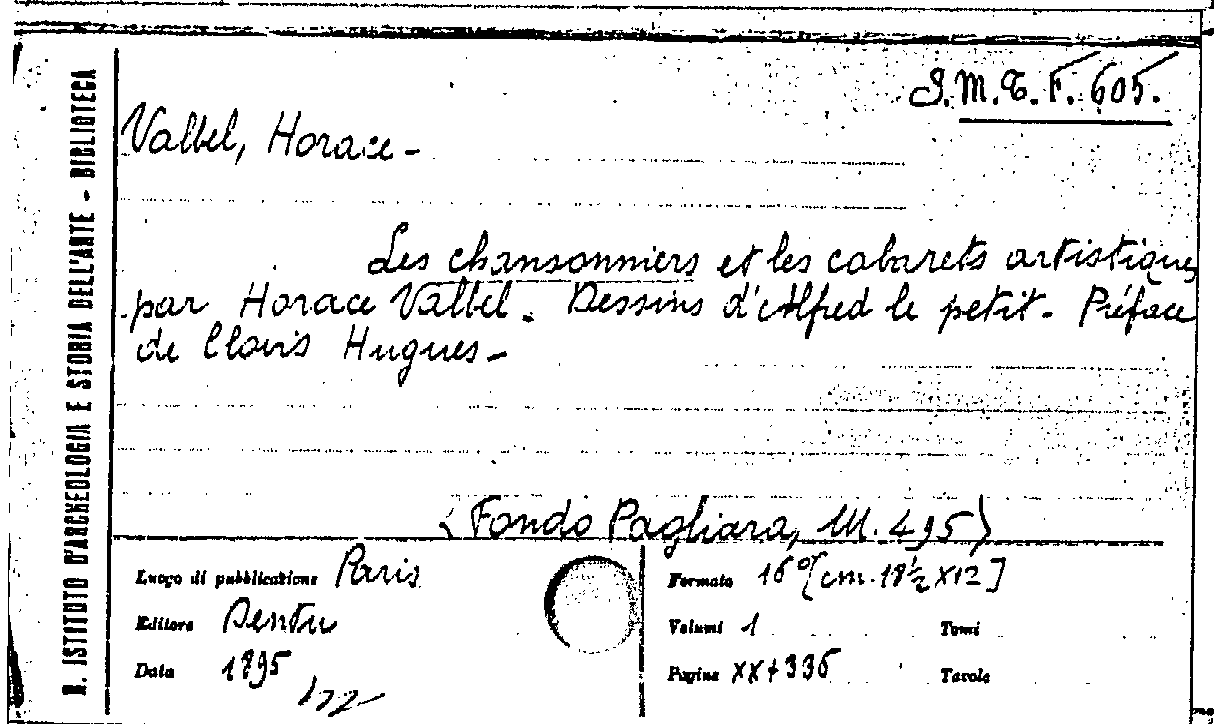 R. ISTITUTO D'ARCHEOLOGIA E STORIA DELL'ARTE - BIBLIOTECA
S.M.T.F. 605.
Valbel, Horace -
Les chansonniers et les cabarets artistiques
par Horace Valbel. Dessins d'Alfred le petit - Préface
de Clovis Hugues -
(Fondo Pagliara, M. 495)
Luogo di pubblicazione Paris
Editore Dentu
Data 1895
Formato 16° [cm. 18½ X12]
Volumi 1 Tomi
Pagine XX+336 Tavole